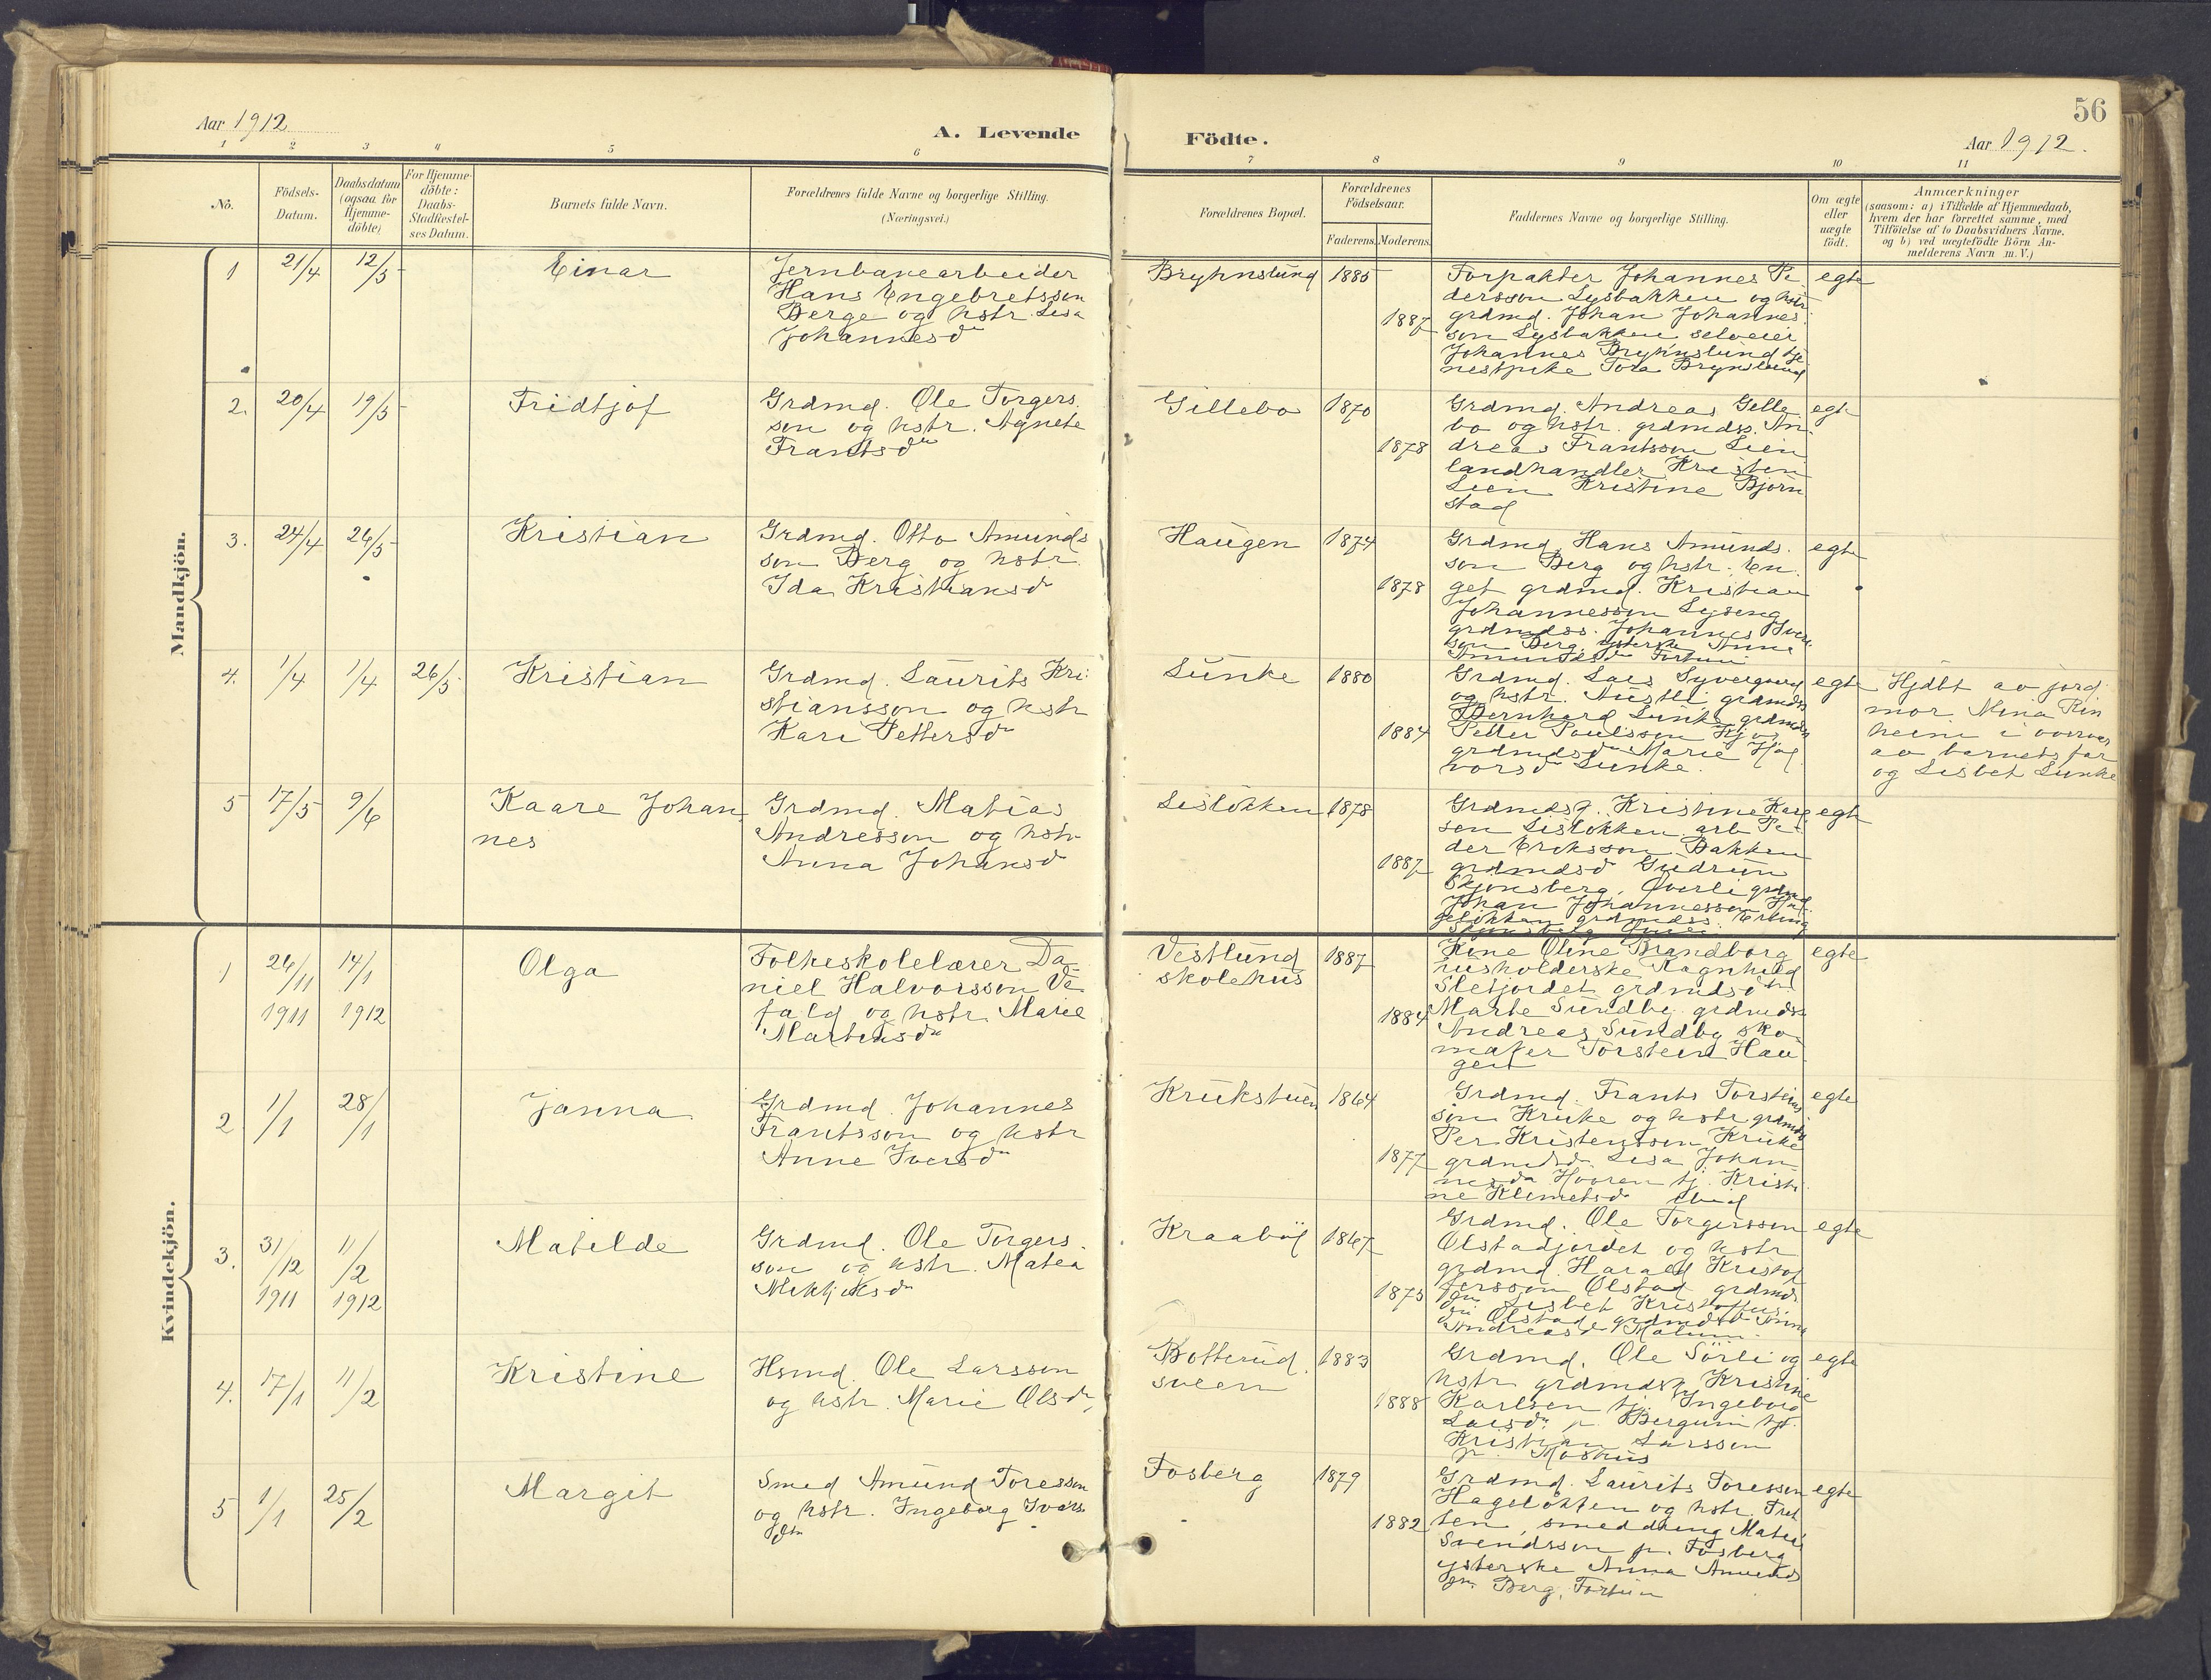 56
Aar 1912
A. Levende
Födte.
Aar 1912.
1 2 3 4 5 6 7 8 9 10 11
No.
Födsels-
Datum.
Daabsdatum
(ogsaa for
Hjemme-
döbte)
For Hjemme-
döbte:
Daabs-
Stadfæstel-
ses Datum.
Barnets fulde Navn.
Forældrenes fulde Navne og borgerlige Stilling.
(Næringsvei.)
Forældrenes Bopæl.
Forældrenes
Födselsaar.
Faderens. Moderens.
Faddernes Navne og borgerlige Stilling.
Om ægte
eller
uægte
födt.
Anmærkninger
(saasom: a) i Tilfælde af Hjemmedaab,
hvem der har forrettet samme, med
Tilföielse af to Daabsvidners Navne.
og b) ved uægtefödte Börn An-
melderens Navn m. V.)
Mandkjön.
1 21/4 12/5 Einar
Jernbanearbeider
Hans Engebretssen
Berge og hstr. Lisa
Johannesdr
Bryhnslund 1885
1887
Forpakter Johannes Pe
dersson Lysbakken og hstr
grdmd. Johan Johannes
son Lysbakken selveier
Johannes Bryhnslund tje
nestpike Tora Brynslund
egte
2. 20/4 19/5 Fridtjof
Grdmd. Ole Torgers
sen og hstr. Agnete
Frantsdr
Gillebo 1870
1878
Grdmd. Andreas Gille
bo og hstr. grdmds. An
dreas Frantsson Lien
landhandler Kristen
Lien Kristine Bjørn
stad
egte
3. 24/4 26/5 Kristian
Grdmd. Otto Amunds
son Berg og hstr.
Ida Kristiansdr
Haugen 1874
1878
Grdmd. Hans Amunds.
son Berg og hstr. En
get grdmd. Kristian
Johannesson Lyseng
grdmdss. Johannes Iver
son Berg, ysterske Anne
Amundsdr Fortun
egte
4. 1/4 1/4 26/5 Kristian
Grdmd. Laurits Kri
stiansson og hstr
Kari Pettersdr
Lunke 1880
1884
Grdmd. Lars
og hstr. grdmds
Bernhard Lunke grdmds
Petter Paulsson
grdmdsdr Marie Hal
vorsdr Lunke.
egte
Hjdbt av jord
mor Mina Rin
heim i overvær
av barnets far
og Lisbet Lunke
5 17/5 9/6 Kaare Johan
nes
Grdmd. Matias
Andresson og hstr
Anna Johansdr
Lisløkken 1878
1887
Grdmdsk. Kristine Karl
sen Lisløkken arb Pe
der Eriksson Bakken
grdmdsdr Gudrun
Skjønsberg, Øverli grdmd.
Johan Johannesson
grdmdss. Erling
egte
Kvindekjön.
1 26/11 14/1
1911 1912
Olga
Folkeskolelærer Da
niel Halvorsson Ve
fald og hstr. Marie
Martinsdr
Vestlund
skolehus 1887
1884
Kone Oline Brandborg
husholderske Ragnhild
Sletjordet grdmdsdtr
Marte Sundby grdmds
Andreas Sundby sko
maker Torstein Hau
gen
egte
2 1/1 28/1 Janna
Grdmd. Johannes
Frantsson og hstr
Anne Iversdr
Krukstuen 1864
1877
Grdmd. Frants Torsteins
son Kruke og hstr grdmds
Per Kristensson Kruke
grdmdsdr. Lisa Johan
nesdr Hovren tj. Kristi
ne Klemetsdr ibid
egte
3. 31/12 11/2
1911 1912
Matilde
Grdmd. Ole Torgers.
son og hstr. Matea
Mekkjelsdr
Kraabøl 1867
1875
Grdmd. Ole Torgersson
Olstadjordet og hstr
grdmd. Harald Kristof
fersson Olstad grdmds
dtr Lisbet Kristoffers.
dtr Olstad grdmdsdtr Anne
Andreasdr
egte
4. 17/1 11/2 Kristine
Hsmd. Ole Larsson
og hstr. Marie Olsdr,
Botterud
sveen 1883
1888
Grdmd. Ole Sørli og
hstr grdmdsk Kristine
Karlsen tj. Ingeborg
Larsdr p. Bergum tj.
Kristian Larsson
p. Moshus
egte
5 1/1 25/2 Margit
Smed Amund Toresson
og hstr. Ingeborg Ivars
dtr
Fosberg 1879
1882
Grdmd. Laurits Toresson
Hagsløkken og hstr. Tret
ten, smeddreng Matis
Svendsson p. Fosberg
ysterske Anna Amunds
dtr. Berg, Fortun
egte